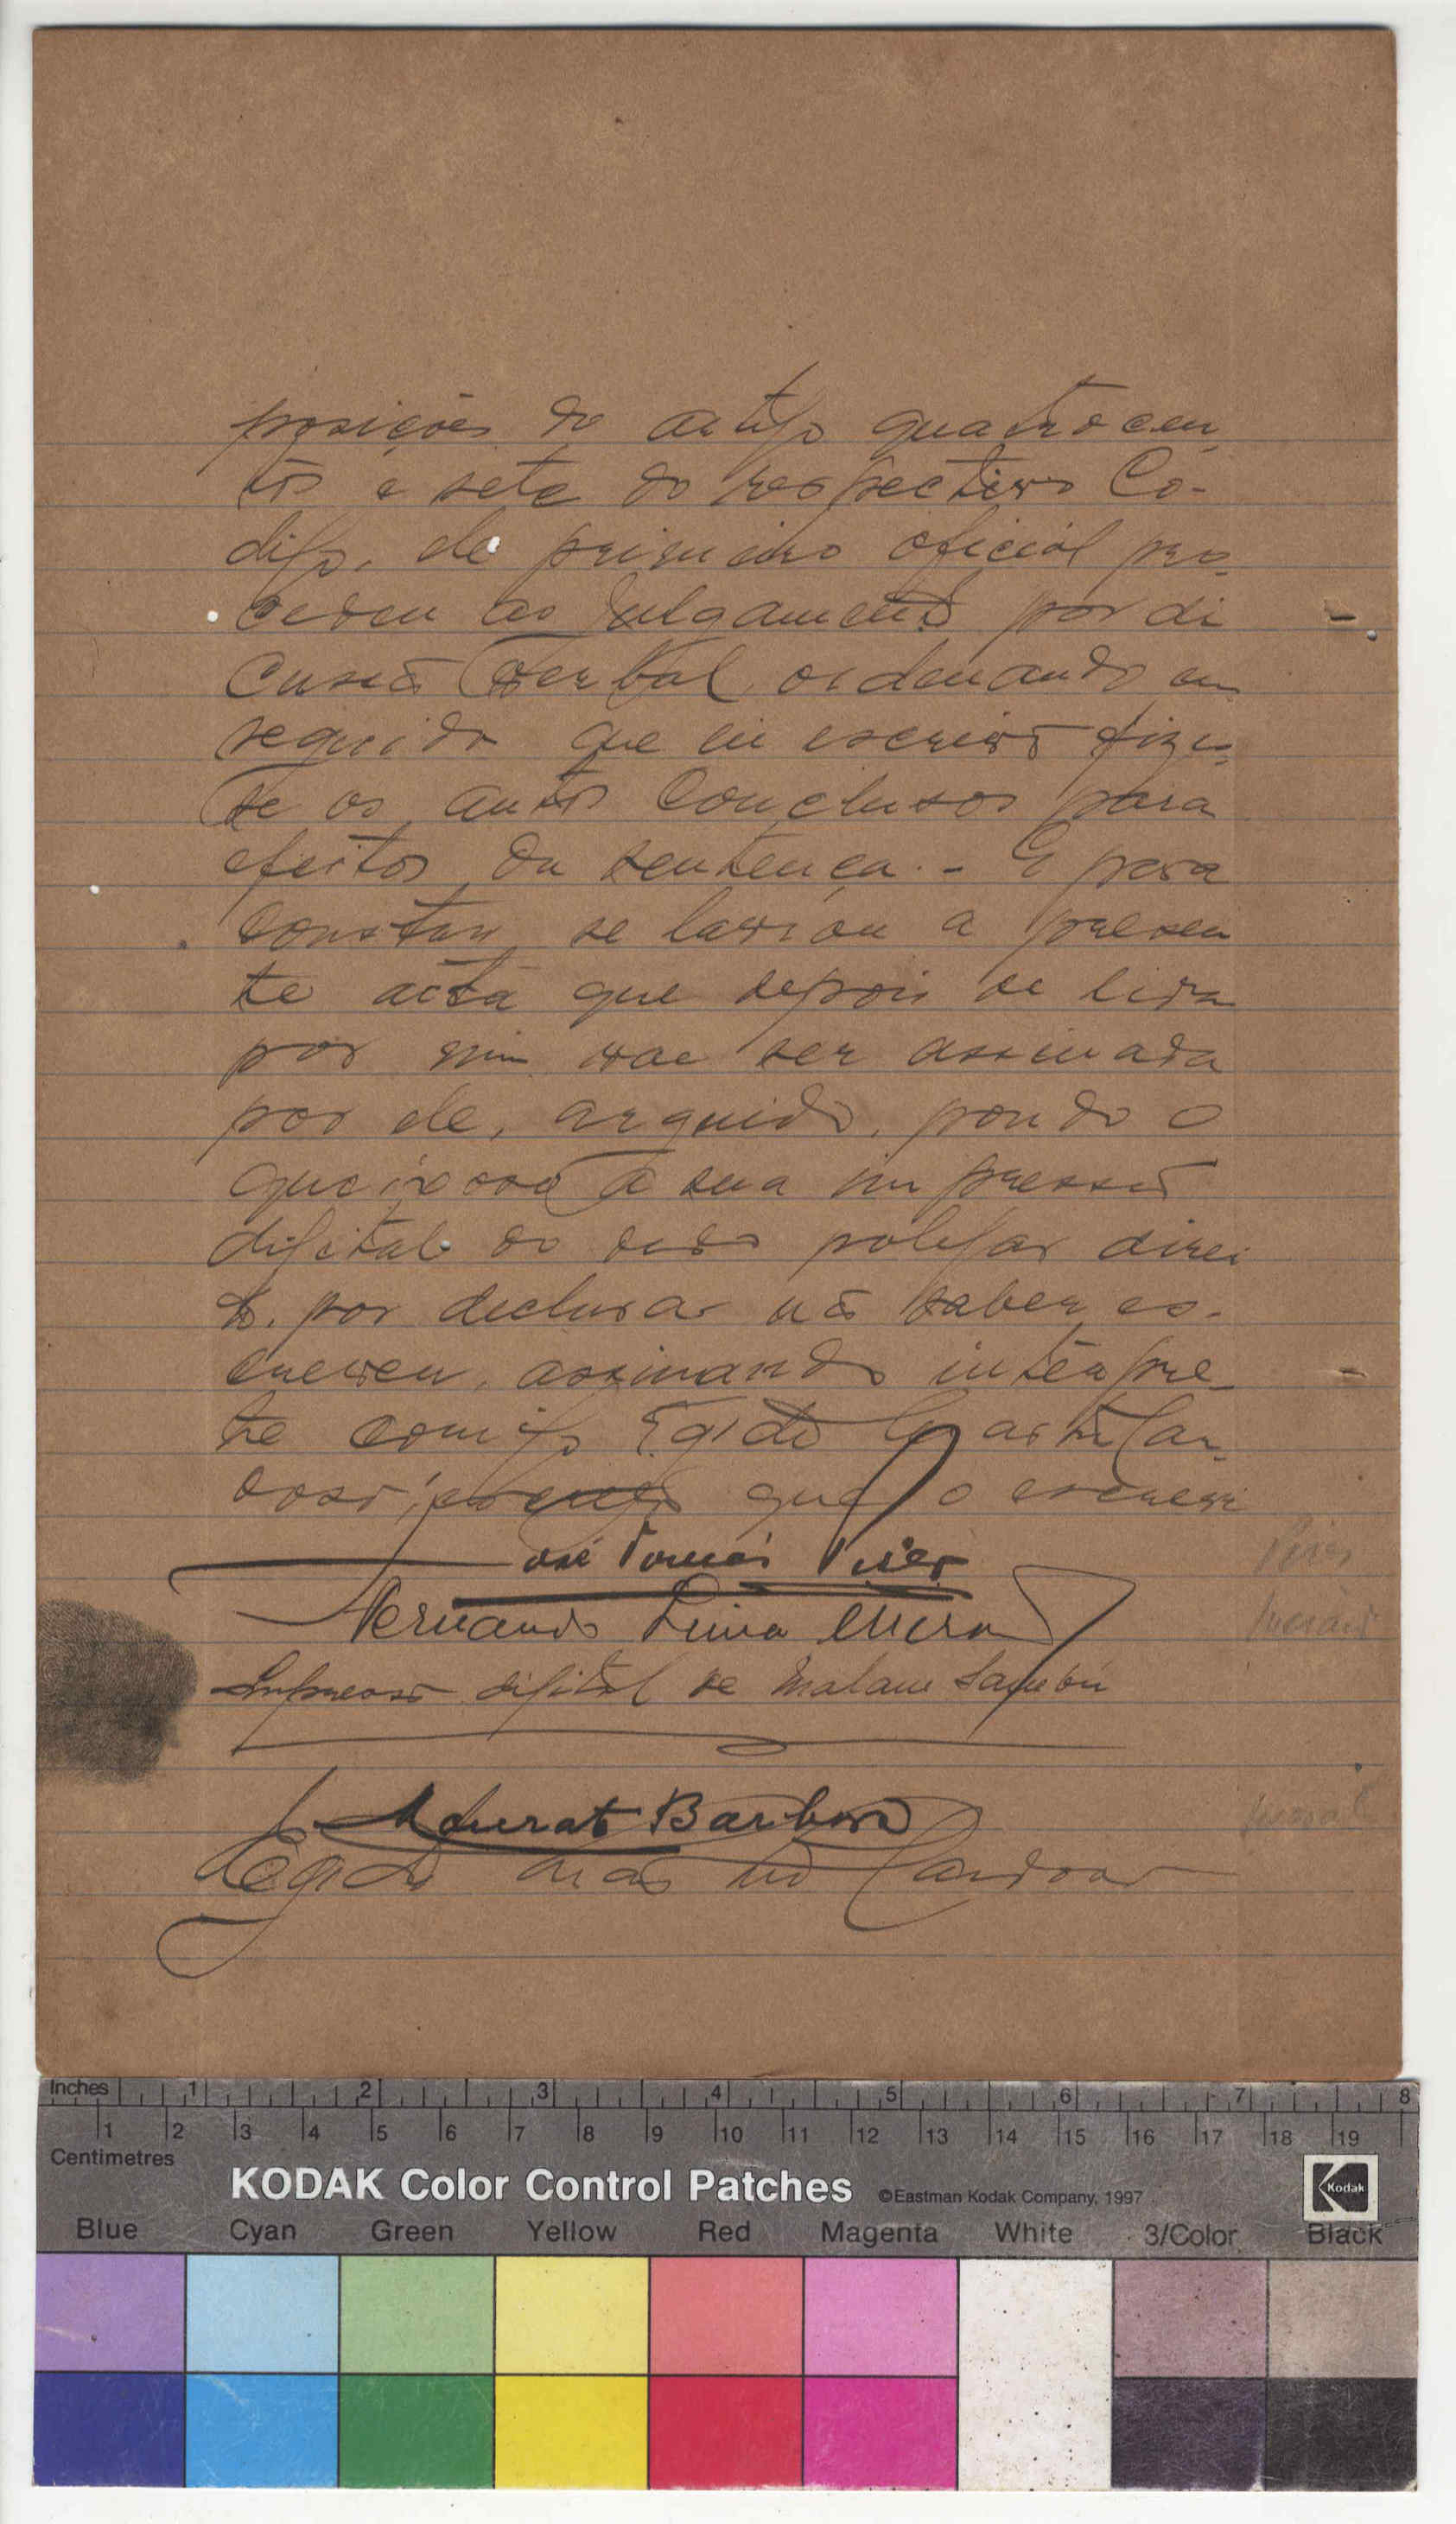 posições do artigo quatrocen
tos e sete do respectivo Có-
digo, ele primeiro oficial pro
cedeu ao julgamento por di
cusão verbal ordenando em
seguida que eu escrivão fizes
se os autos conclusos para
efeitos da sentença. - E para
constar se lavrou a presen
te acta que depois de lida
por mim vae ser assinada
por ele, arguido, pondo o
queixoso a sua impressão
digital do dedo polegar direi
to, por declarar não saber es-
crever, assinando interpre-
te comigo Egidio Castro Car
doso, que o escrevi
José Tomás Pires
Fernando Lima
Impressão digital de Malam Sambú
Murat Barbosa
Egidio Cardoso
Pires
Inches 1 2 3 4 5 6 7 8
1 2 3 4 5 6 7 8 9 10 11 12 13 14 15 16 17 18 19
Centimetres
KODAK Color Control Patches ©Eastman Kodak Company, 1997 Kodak
Blue Cyan Green Yellow Red Magenta White 3/Color Black